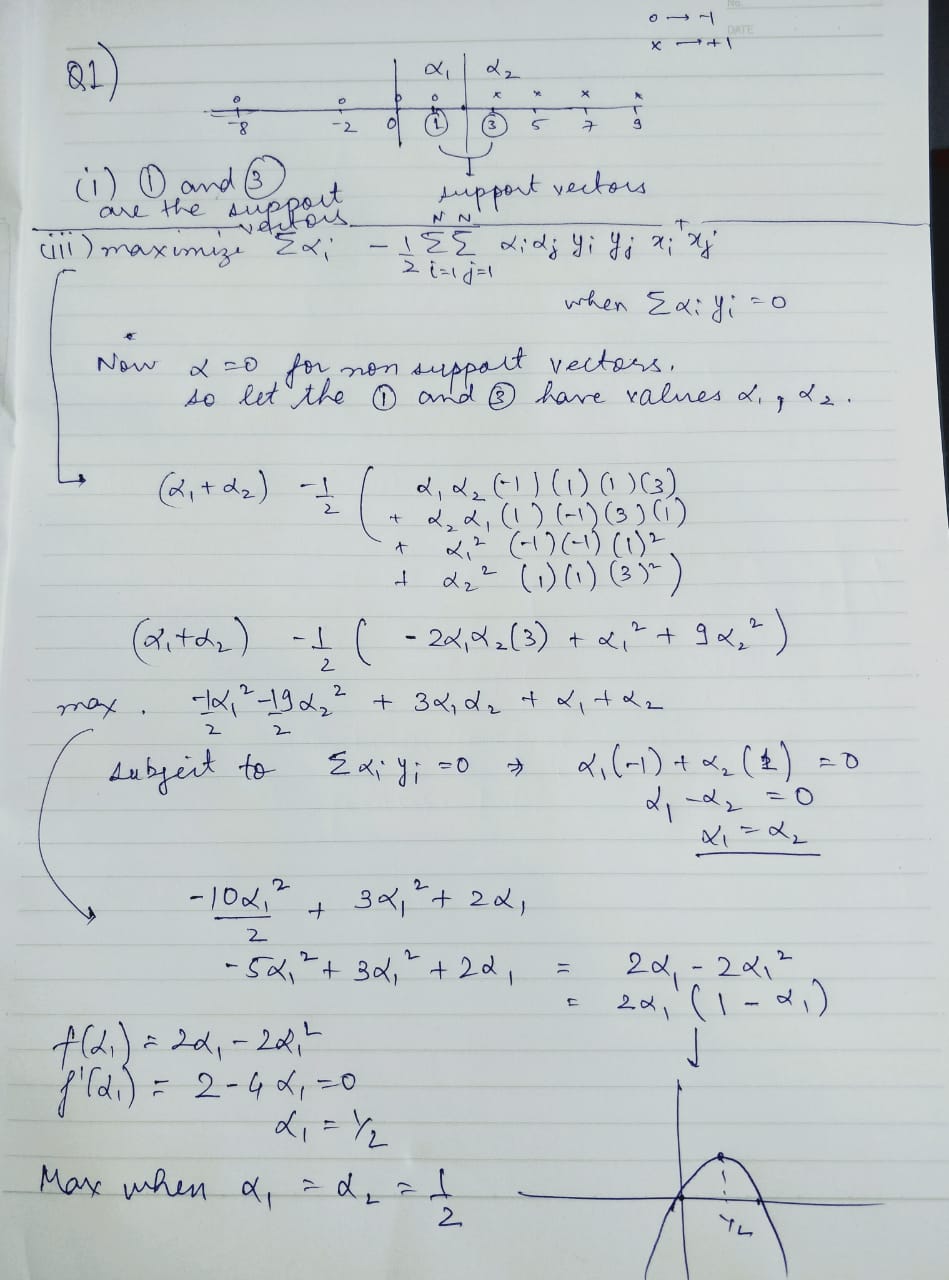 No.
DATE
o → -1
x → +1
Q1)
α₁ α₂
o o o o x x x x
-8 -2 0 ① ③ 5 7 9
support vectors
(i) ① and ③
are the support
vectors
(iii) maximize Σαᵢ - 1/2 Σᵢ₌₁ᴺ Σⱼ₌₁ᴺ αᵢαⱼ yᵢ yⱼ xᵢᵀxⱼ
when Σαᵢyᵢ = 0
Now α = 0 for non support vectors.
so let the ① and ③ have values α₁, α₂.
(α₁ + α₂) - 1/2 ( α₁α₂ (-1)(1)(1)(3)
+ α₂α₁ (1)(-1)(3)(1)
+ α₁² (-1)(-1)(1)²
+ α₂² (1)(1)(3)² )
(α₁+α₂) - 1/2 ( - 2α₁α₂(3) + α₁² + 9α₂² )
max. -1α₁²/2 - 19α₂²/2 + 3α₁α₂ + α₁ + α₂
subject to Σαᵢyᵢ = 0 ⇒ α₁(-1) + α₂(1) = 0
α₁ - α₂ = 0
α₁ = α₂
-10α₁²/2 + 3α₁² + 2α₁
-5α₁² + 3α₁² + 2α₁ = 2α₁ - 2α₁²
= 2α₁ (1 - α₁)
f(α₁) = 2α₁ - 2α₁²
f'(α₁) = 2 - 4α₁ = 0
α₁ = 1/2
Max when α₁ = α₂ = 1/2
1/2